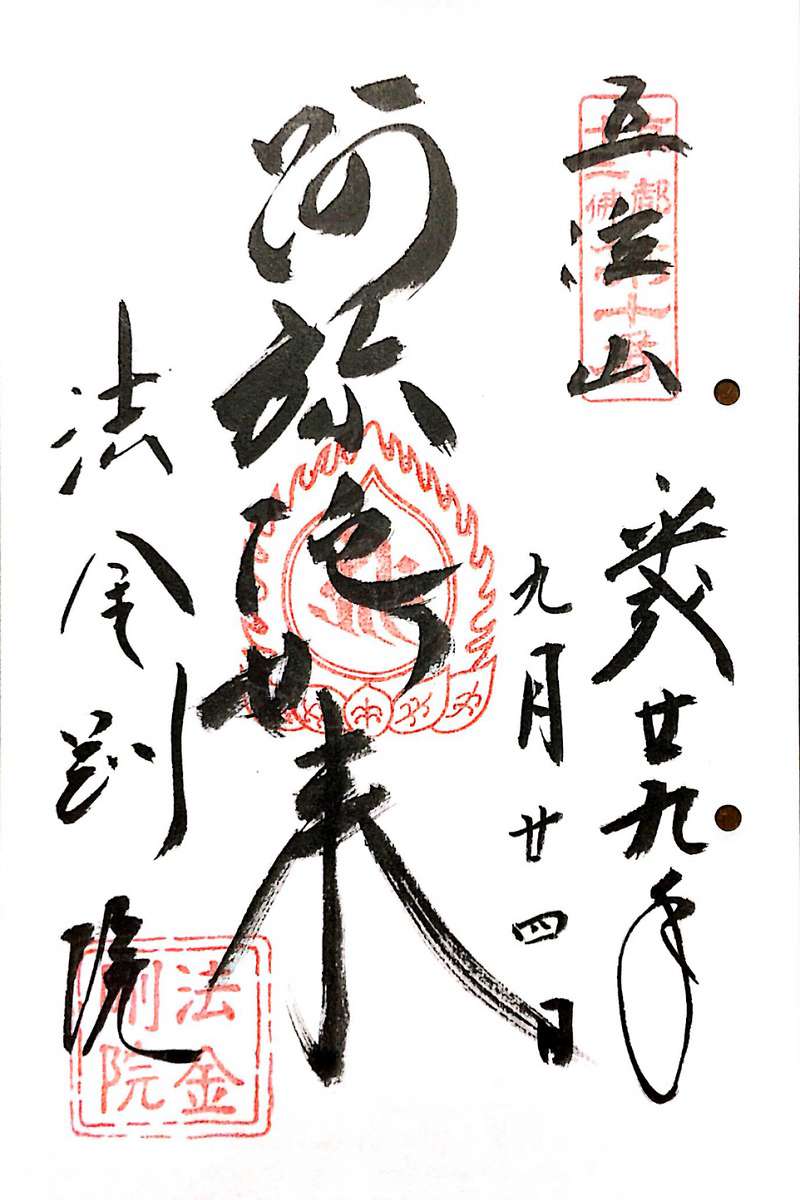 五位山
京都
十三佛
第十番
平成廿九年
九月廿四日
阿弥陀如来
法金剛院
法金
剛院